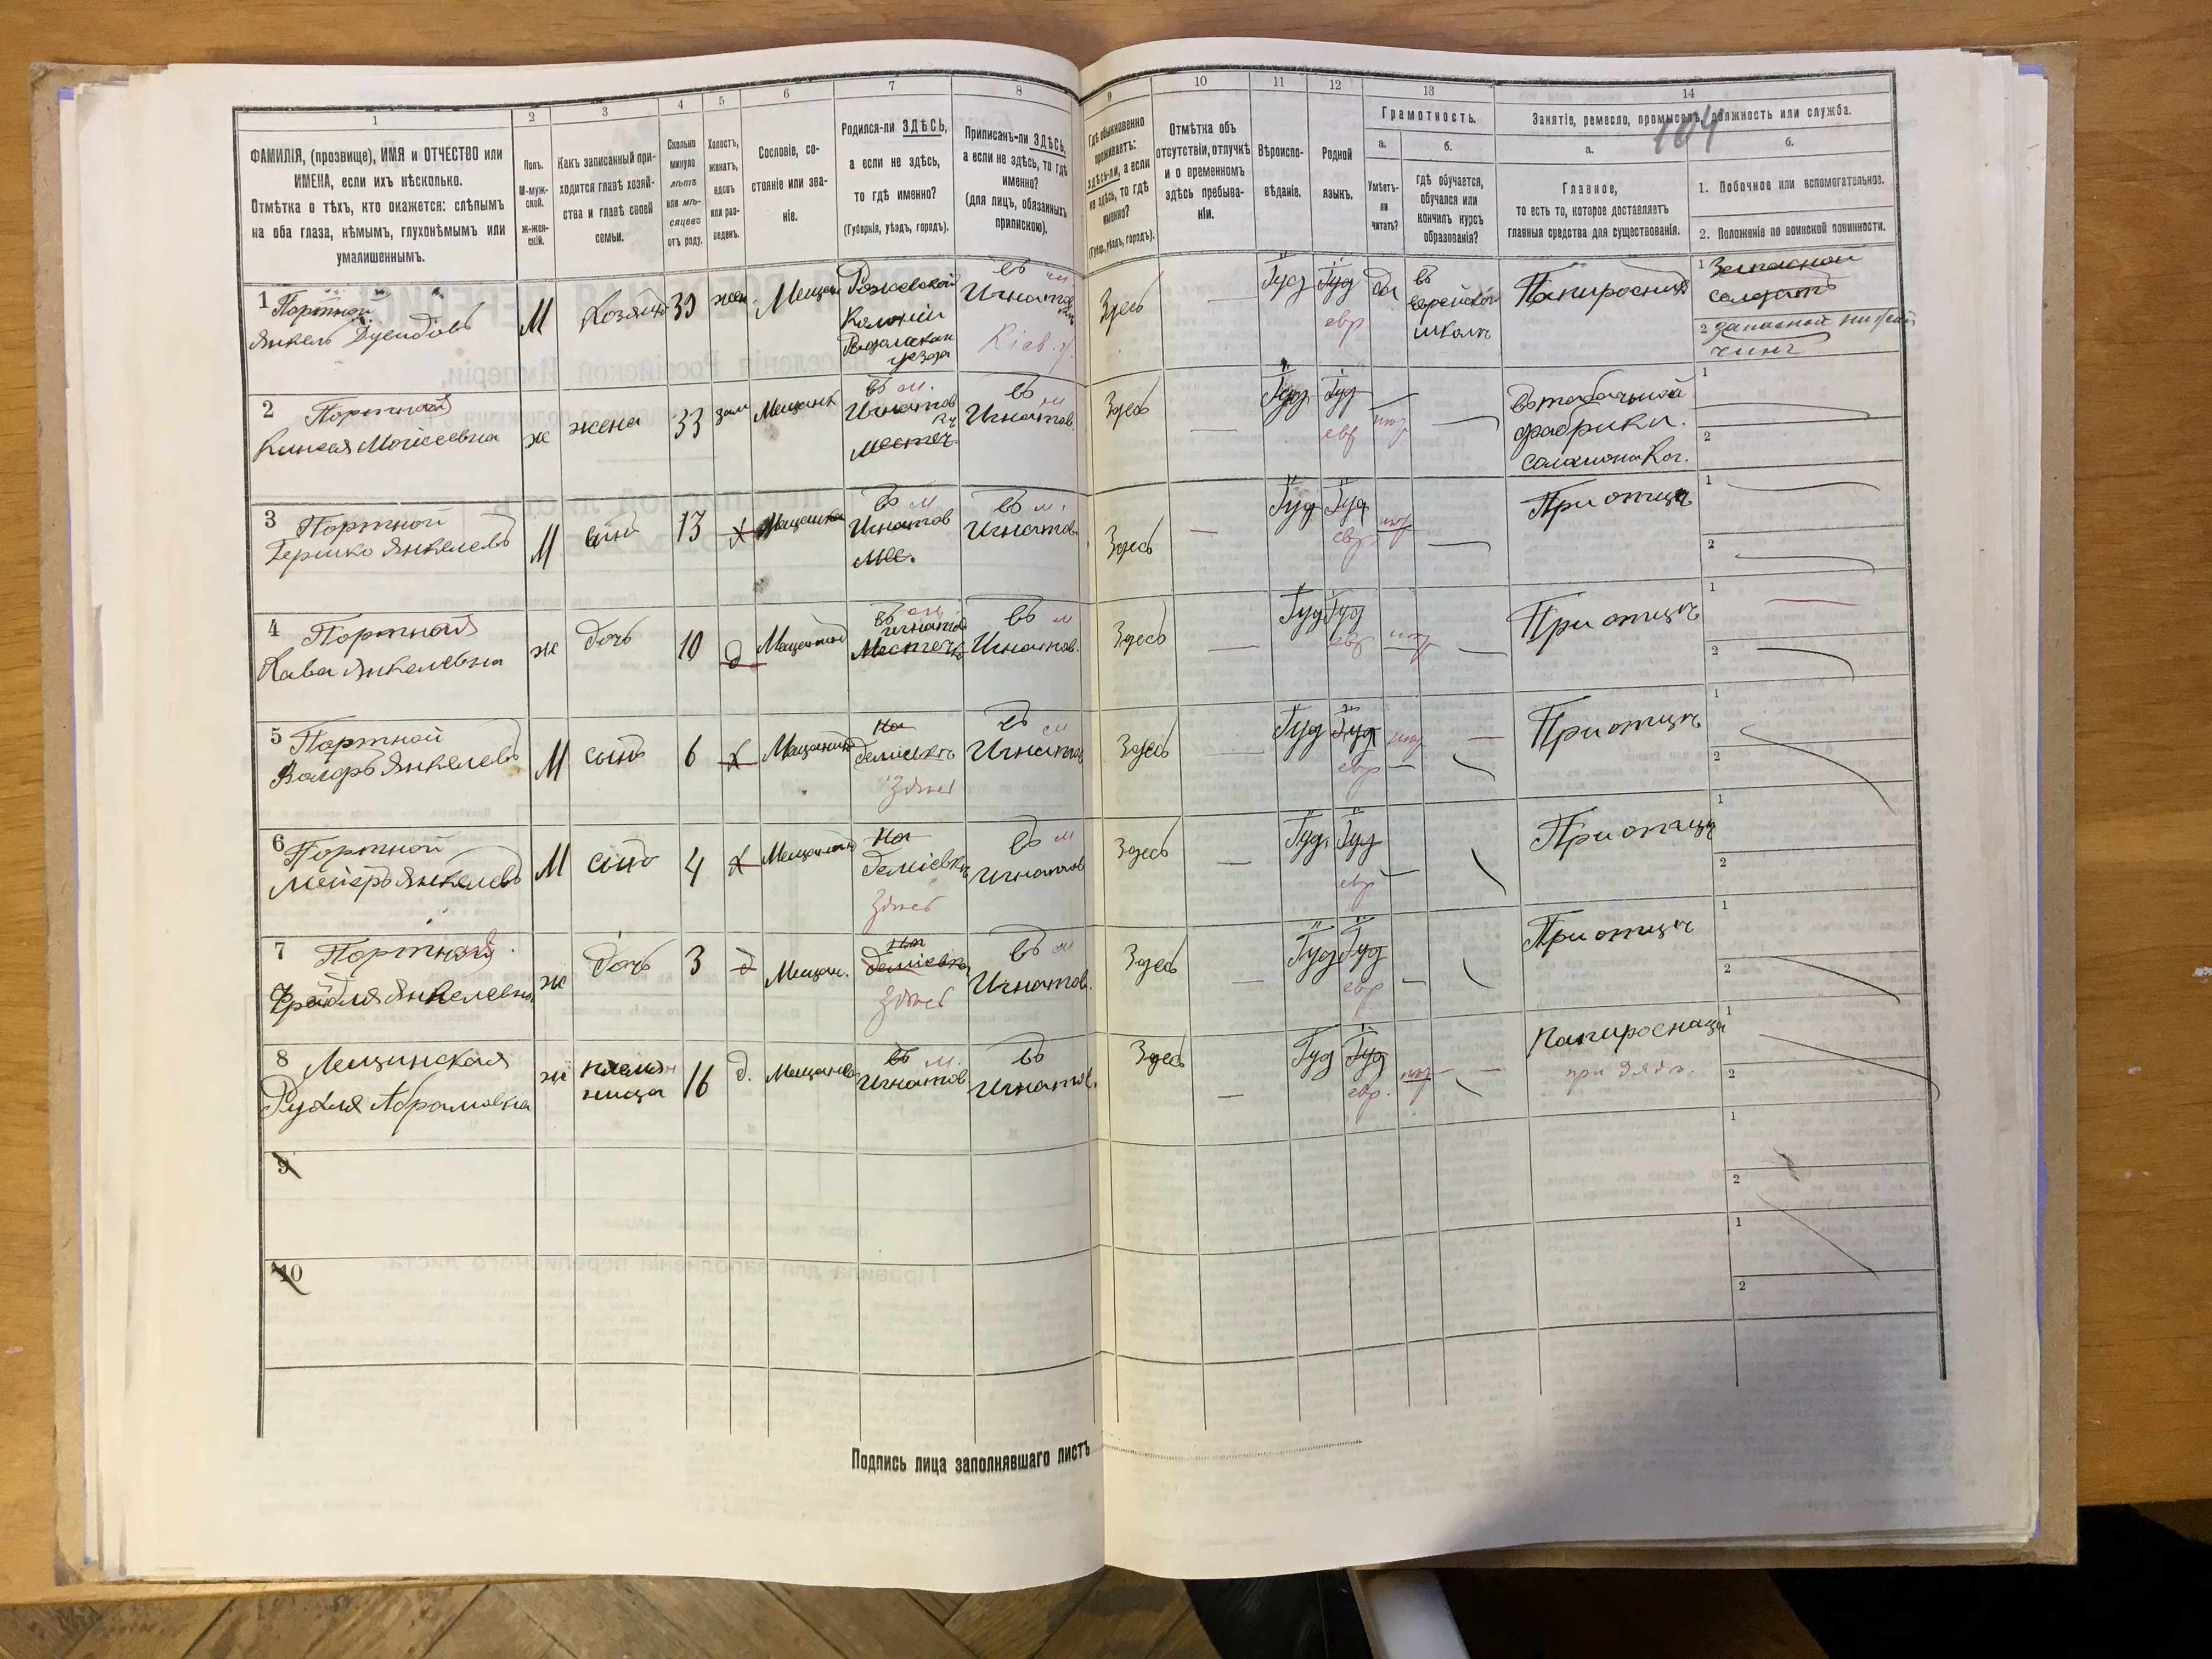 104
1
2
3
4
5
6
7
8
9
10
11
12
13
14
ФАМИЛІЯ, (прозвище), ИМЯ и ОТЧЕСТВО или
ИМЕНА, если ихъ нѣсколько.
Отмѣтка о тѣхъ, кто окажется: слѣпымъ
на оба глаза, нѣмымъ, глухонѣмымъ или
умалишеннымъ.
Полъ.
М-муж-
ской.
Ж-жен-
скій.
Какъ записанный при-
ходится главѣ хозяй-
ства и главѣ своей
семьи.
Сколько
минуло
лѣтъ
или мѣ-
сяцевъ
отъ роду.
Холостъ,
женатъ,
вдовъ
или раз-
веденъ.
Сословіе, со-
стояніе или зва-
ніе.
Родился-ли ЗДѢСЬ,
а если не здѣсь,
то гдѣ именно?
(Губернія, уѣздъ, городъ).
Приписанъ-ли ЗДѢСЬ,
а если не здѣсь, то гдѣ
именно?
(для лицъ, обязанныхъ
припискою).
Гдѣ обыкновенно
проживаетъ:
здѣсь-ли, а если
не здѣсь, то гдѣ
именно?
(Губер., уѣздъ, городъ).
Отмѣтка объ
отсутствіи, отлучкѣ
и о временномъ
здѣсь пребыва-
ніи.
Вѣроиспо-
вѣданіе.
Родной
языкъ.
Грамотность.
а.
Умѣетъ-
ли
читать?
б.
гдѣ обучается,
обучался или
кончилъ курсъ
образованія?
Занятіе, ремесло, промыселъ, должность или служба.
а.
Главное,
то есть то, которое доставляетъ
главныя средства для существованія.
б.
1. Побочное или вспомогательное.
2. Положеніе по воинской повинности.
1 Портной
Янкель
М
Хозяинъ
39
жен.
Мещан
уезда
въ м
Кіев.
Здесь
Іуд
Іуд
евр
да
въ
еврейской
школе
Папиросникъ
1 Запасной
солдатъ
2 запасной нижній
чинъ
2 Портная
Моисеевна
ж
жена
33
зам
Мещанк
въ м.
Игнатов
местеч.
въ м
Игнатов.
Здесь
Іуд
Іуд
евр
нет
въ табачной
фабрики
1
2
3 Портной
Гершко Янкелевъ
М
сынъ
13
х
въ м
Игнатов
мес.
въ м.
Игнатов
Здесь
Іуд
Іуд
евр
нет
При отцѣ
1
2
4 Портная
Хава Янкелевна
ж
дочь
10
д
въ м
Игнатов
Местечк
въ м
Игнатов.
Здесь
Іуд
Іуд
евр
нет
При отцѣ
1
2
5 Портной
Янкелевъ
М
сынъ
6
х
Мещанинъ
На
Деміевкѣ
Здѣсь
въ м
Игнатов
Здесь
Іуд
Іуд
евр
нет
При отцѣ
1
2
6 Портной
Мейеръ Янкелевъ
М
сынъ
4
х
На
Деміевкѣ
Здѣсь
въ м
Игнатов
Здесь
Іуд.
Іуд
евр
При отцѣ
1
2
7 Портная
Фрейдля Янкелевна
ж
дочь
3
д
Мещан.
На
Деміевкѣ
Здѣсь
въ м
Игнатов.
Здесь
Іуд
Іуд
евр
При отцѣ
1
2
8 Лещинская
Рухля Абрамовна
ж
племян
ница
16
д.
въ м.
Игнатов
въ
Игнатов.
Здесь
Іуд
Іуд
евр.
нет
Папиросница
при дядѣ.
1
2
9
1
2
10
1
2
Подпись лица заполнявшаго листъ